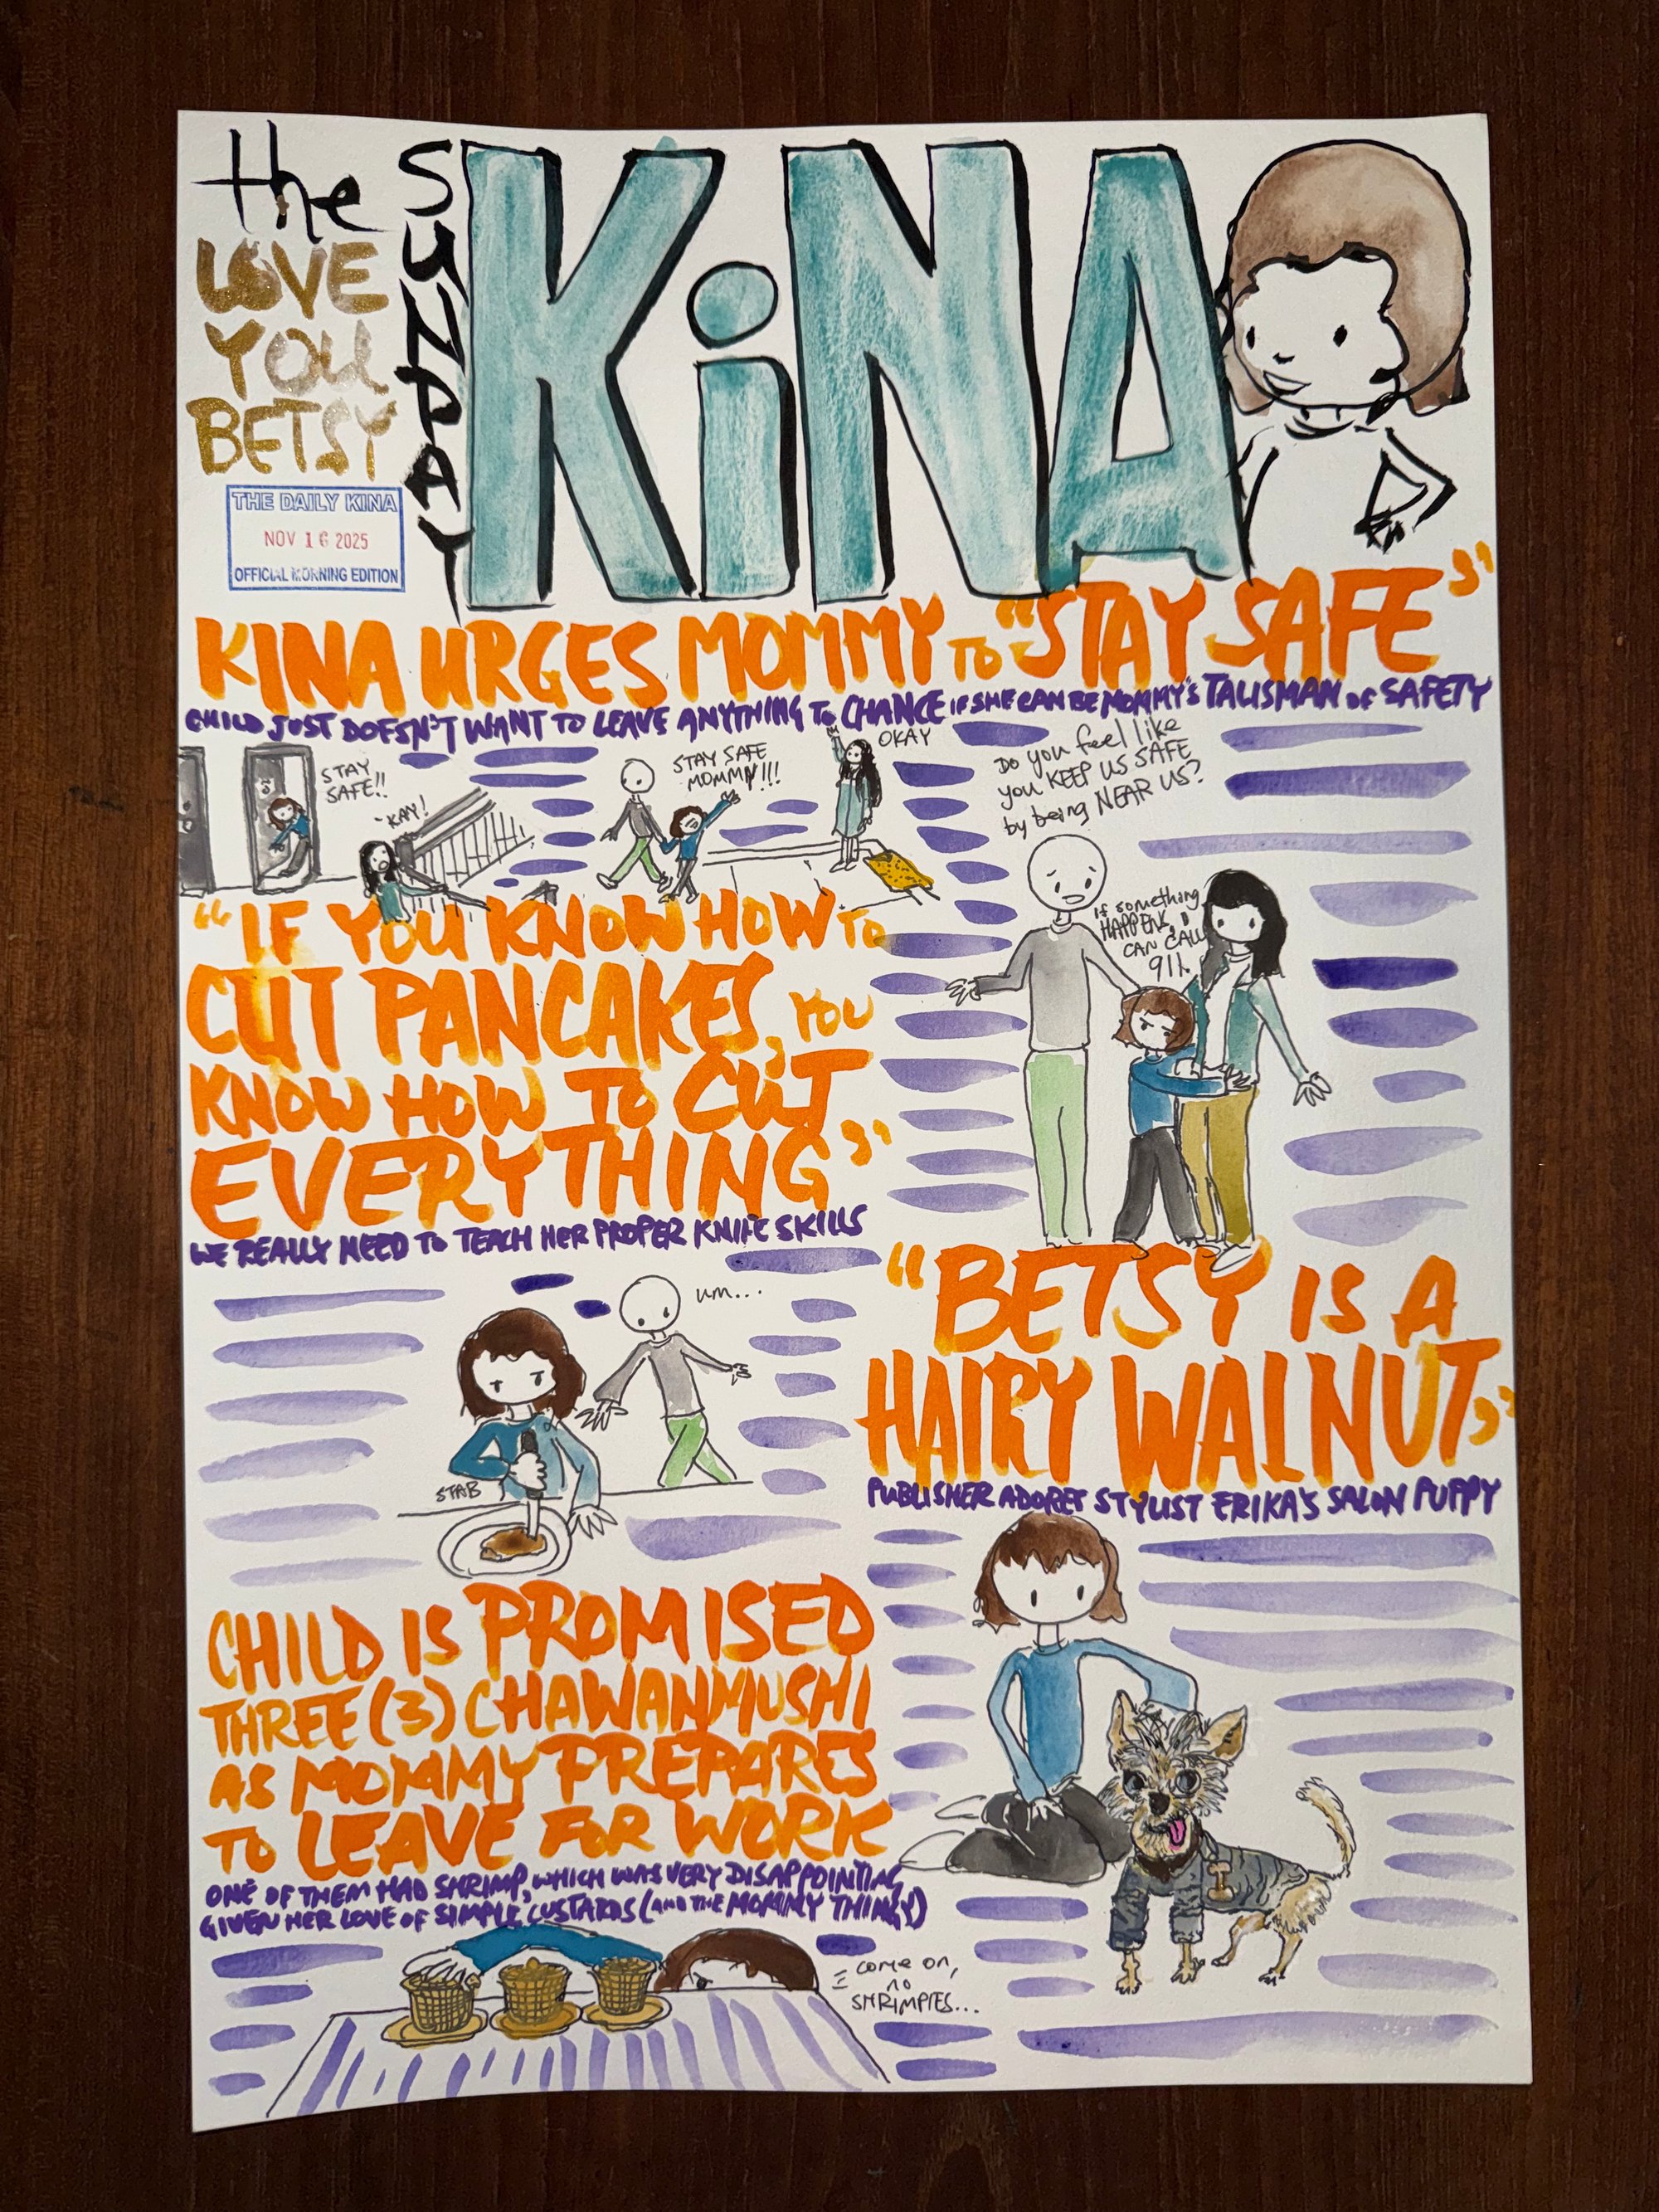 the
LOVE
YOU
BETSY
SUNDAY
KiNA
THE DAILY KINA
NOV 16 2025
OFFICIAL MORNING EDITION
KINA URGES MOMMY TO "STAY SAFE"
CHILD JUST DOESN'T WANT TO LEAVE ANYTHING TO CHANCE IF SHE CAN BE MOMMY'S TALISMAN OF SAFETY
STAY
SAFE!!
'KAY!
STAY SAFE
MOMMY!!!
OKAY
Do you feel like
you KEEP US SAFE
by being NEAR US?
If something
HAPPENS, I
CAN CALL
911.
"IF YOU KNOW HOW TO
CUT PANCAKES, YOU
KNOW HOW TO CUT
EVERYTHING"
WE REALLY NEED TO TEACH HER PROPER KNIFE SKILLS
um...
STAB
"BETSY IS A
HAIRY WALNUT"
PUBLISHER ADORES STYLIST ERIKA'S SALON PUPPY
CHILD IS PROMISED
THREE (3) CHAWANMUSHI
AS MOMMY PREPARES
TO LEAVE FOR WORK
ONE OF THEM HAD SHRIMP, WHICH WAS VERY DISAPPOINTING
GIVEN HER LOVE OF SIMPLE CUSTARDS (AND THE MOMMY THINGY)
come on,
no
SHRIMPIES...